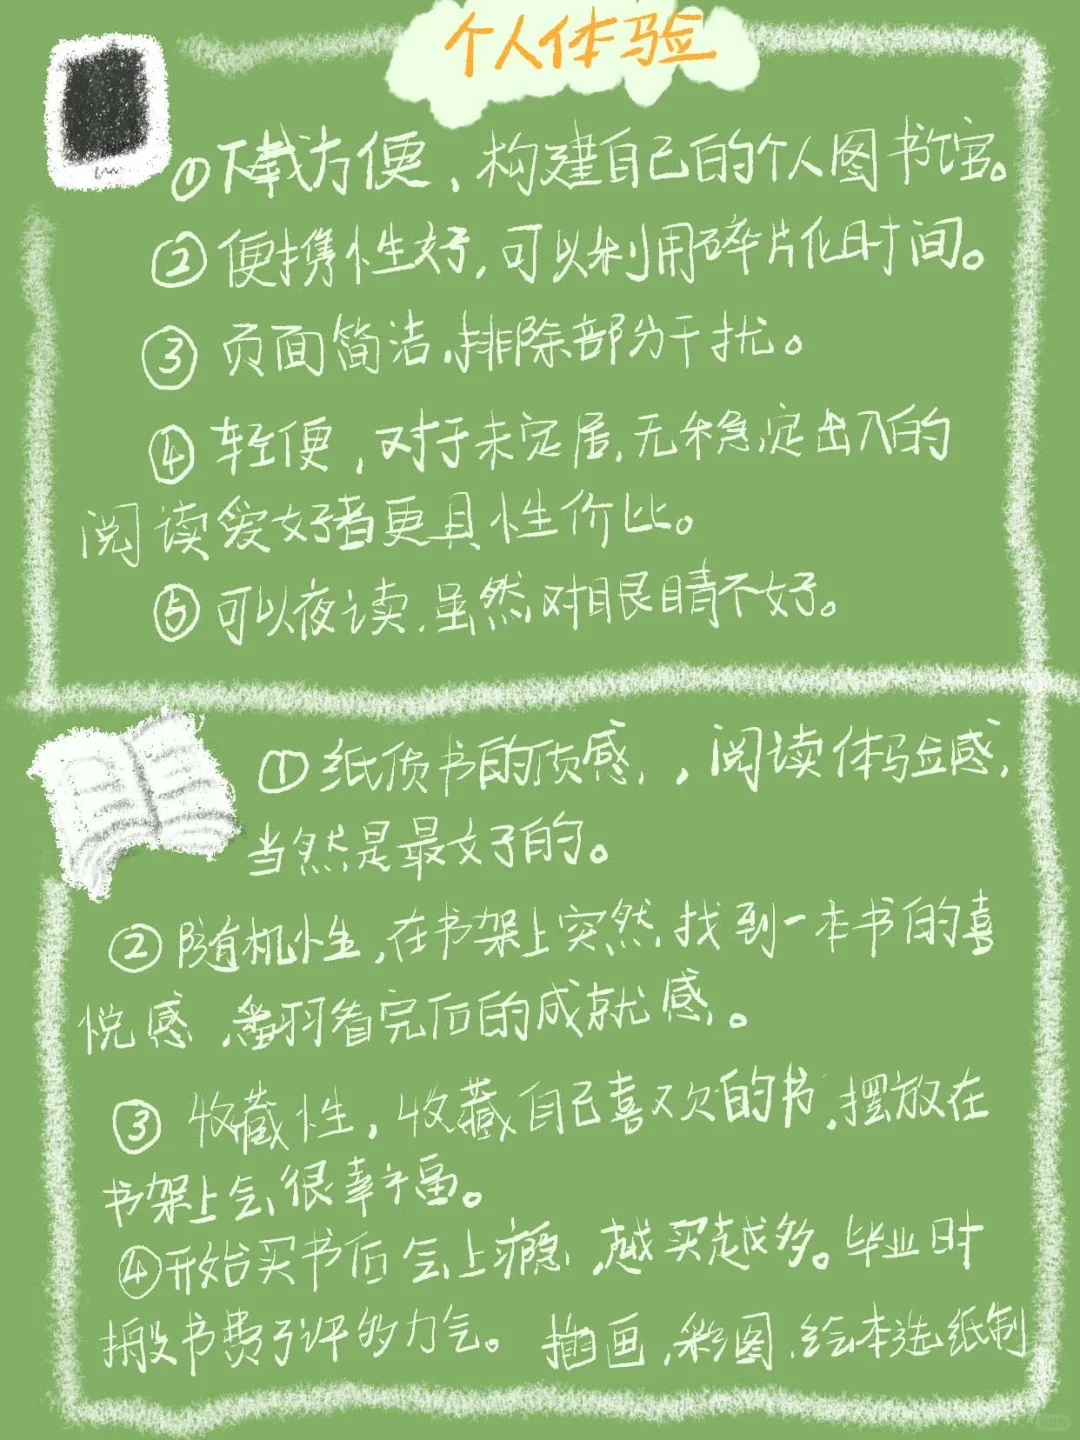 个人体验
①下载方便，构建自己的个人图书馆。
②便携性好，可以利用碎片化时间。
③页面简洁，排除部分干扰。
④轻便，对于未定居，无稳定出入的
阅读爱好者更具性价比。
⑤可以夜读，虽然对眼睛不好。
①纸质书的质感，，阅读体验感，
当然是最好的。
②随机性，在书架上突然找到一本书的喜
悦感，翻看完后的成就感。
③收藏性，收藏自己喜欢的书，摆放在
书架上会很幸福。
④开始买书后会上瘾，越买越多。毕业时
搬书费了许多力气。 插画，彩图，绘本选纸制